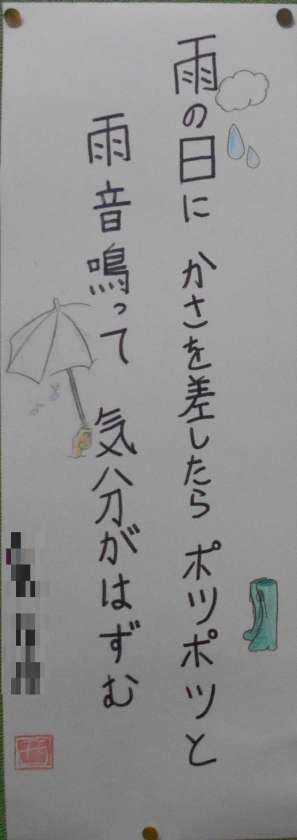 雨の日に かさを差したら ポツポツと
雨音鳴って 気分がはずむ